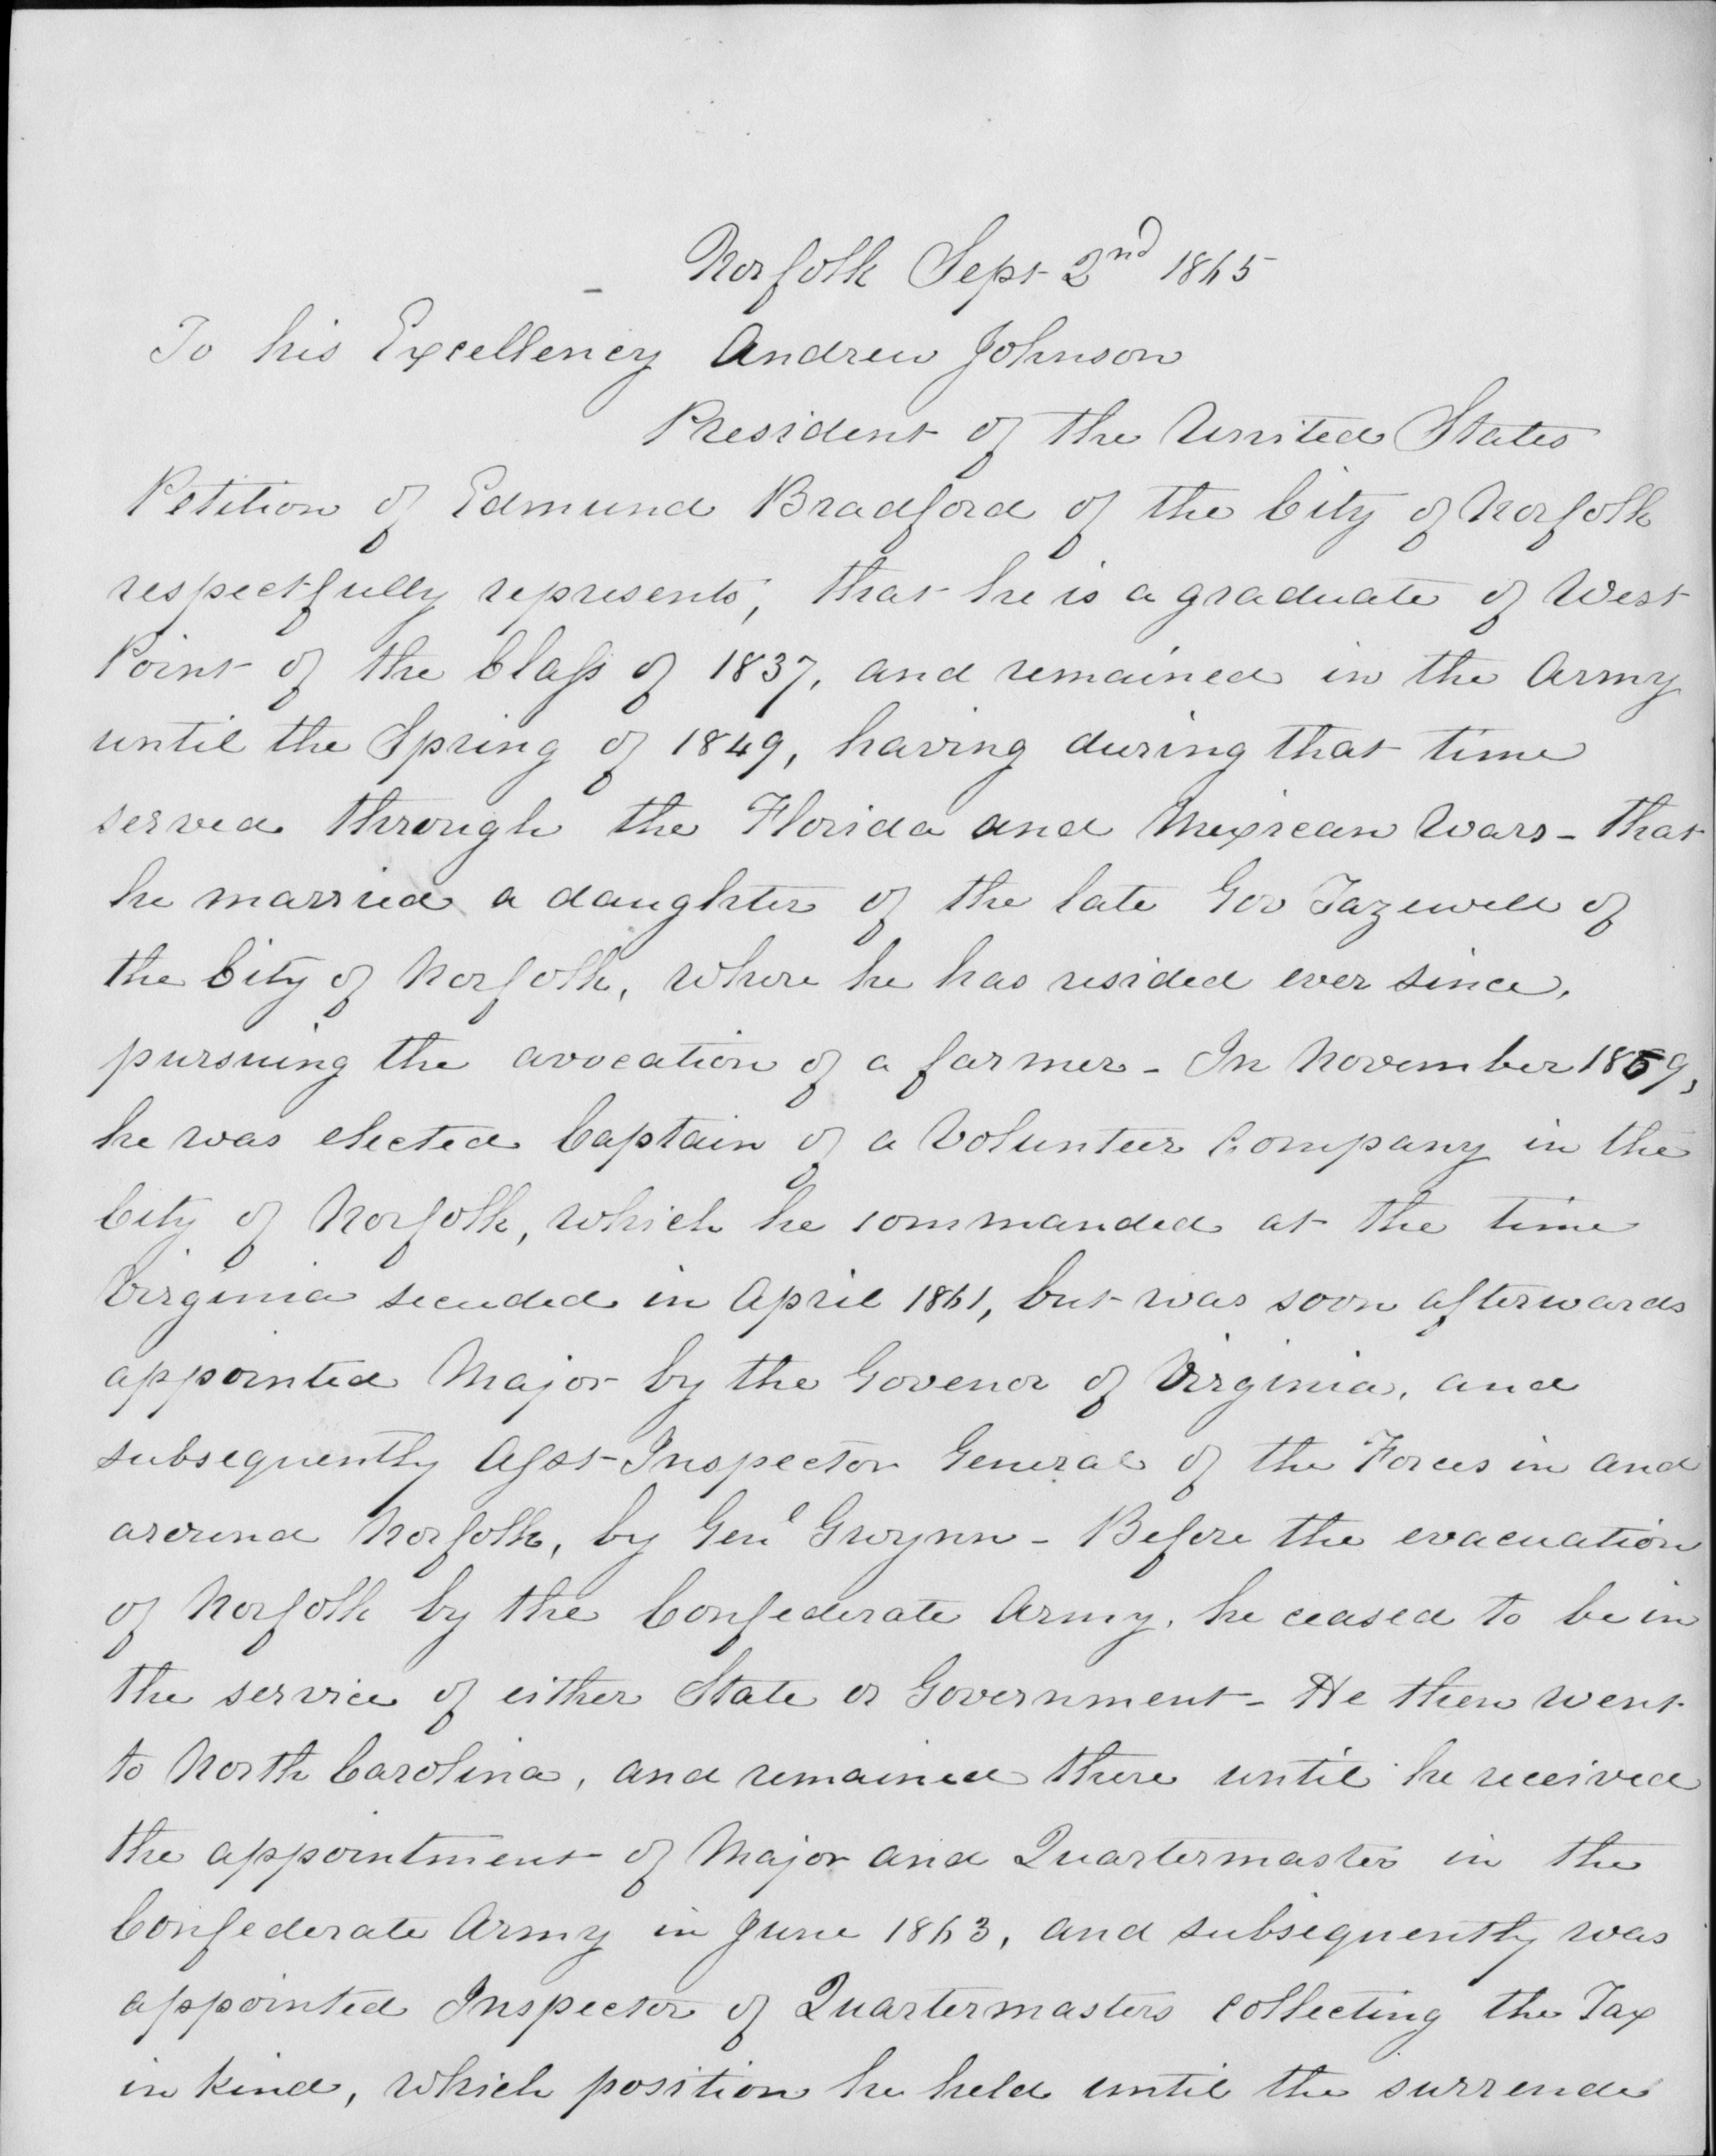 Norfolk Sept 2nd 1865
To his Excellency Andrew Johnson
President of the United States
Petition of Edmund Bradford of the City of Norfolk
respectfully represents, that he is a graduate of West
Point of the Class of 1837, and remained in the Army
until the Spring of 1849, having during that time
served through the Florida and Mexican Wars - that
he married a daughter of the late Gov Tazewell of
the City of Norfolk, where he has resided ever since,
pursuing the avocation of a farmer - In November 1859,
he was elected Captain of a Volunteer Company in the
City of Norfolk, which he commanded at the time
Virginia seceded in April 1861, but was soon afterwards
appointed Major by the Govenor of Virginia, and
subsequently Asst Inspector General of the Forces in and
around Norfolk, by Genl Gwynn - Before the evacuation
of Norfolk by the Confederate Army, he ceased to be in
the service of either State or Government - He then went
to North Carolina, and remained there until he received
the appointment of Major and Quartermaster in the
Confederate Army in June 1863, and subsequently was
appointed Inspector of Quartermasters collecting the Tax
in kind, which position he held until the surrender